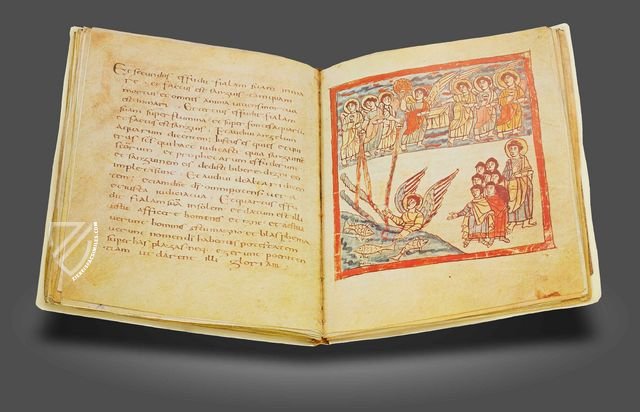 Et secundus effudit fialam suam in ma
re et factus est sanguis tamquam
mortui et omnis anima uiuens mortua
est in mari Et tertius effudit fialam
suam super flumina et super fontes aquaru
et factus est sanguis Et audiui angelum
aquarum dicentem iustus es qui es et qui
eras quia sanguine
et prophetarum effuderunt
et sanguinem eis dedisti bibere digni
Et audiui altare dicen
tem etiam omnipotens uera
et iusta iudicia tua Et quartus effu
dit fialam suam in solem et datum est illi
aestu afficere homines et igne et aestu
uerunt homines aestu magno et blasphema
uerunt nomen di habentis potestatem
super has plagas egerunt poeniten
tiam ut darent illi gloriam
ZIEREIS FAKSIMILES.COM